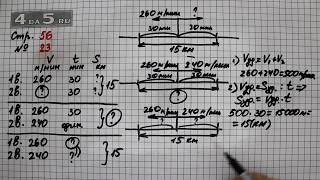 4da5.ru
Стр. 56
№ 23
V t S
м/мин мин км
1в. 260 30 ?
2в. ? 30 ?
15
1в. 260 30
2в. 240 один. ?
1в. 260 ?
2в. 240 ?
15
260 м/мин ?
30 мин 30 мин
15 км
260 м/мин 240 м/мин
30 мин 30 мин
?
260 м/мин 240 м/мин
? ?
15 км
1) Vуд. = V₁ + V₂
260+240=500 м/мин
2) Vуд = Sуд. : t ⇒
Sуд. = Vуд. · t
500·30=15000 м=
=15(км)